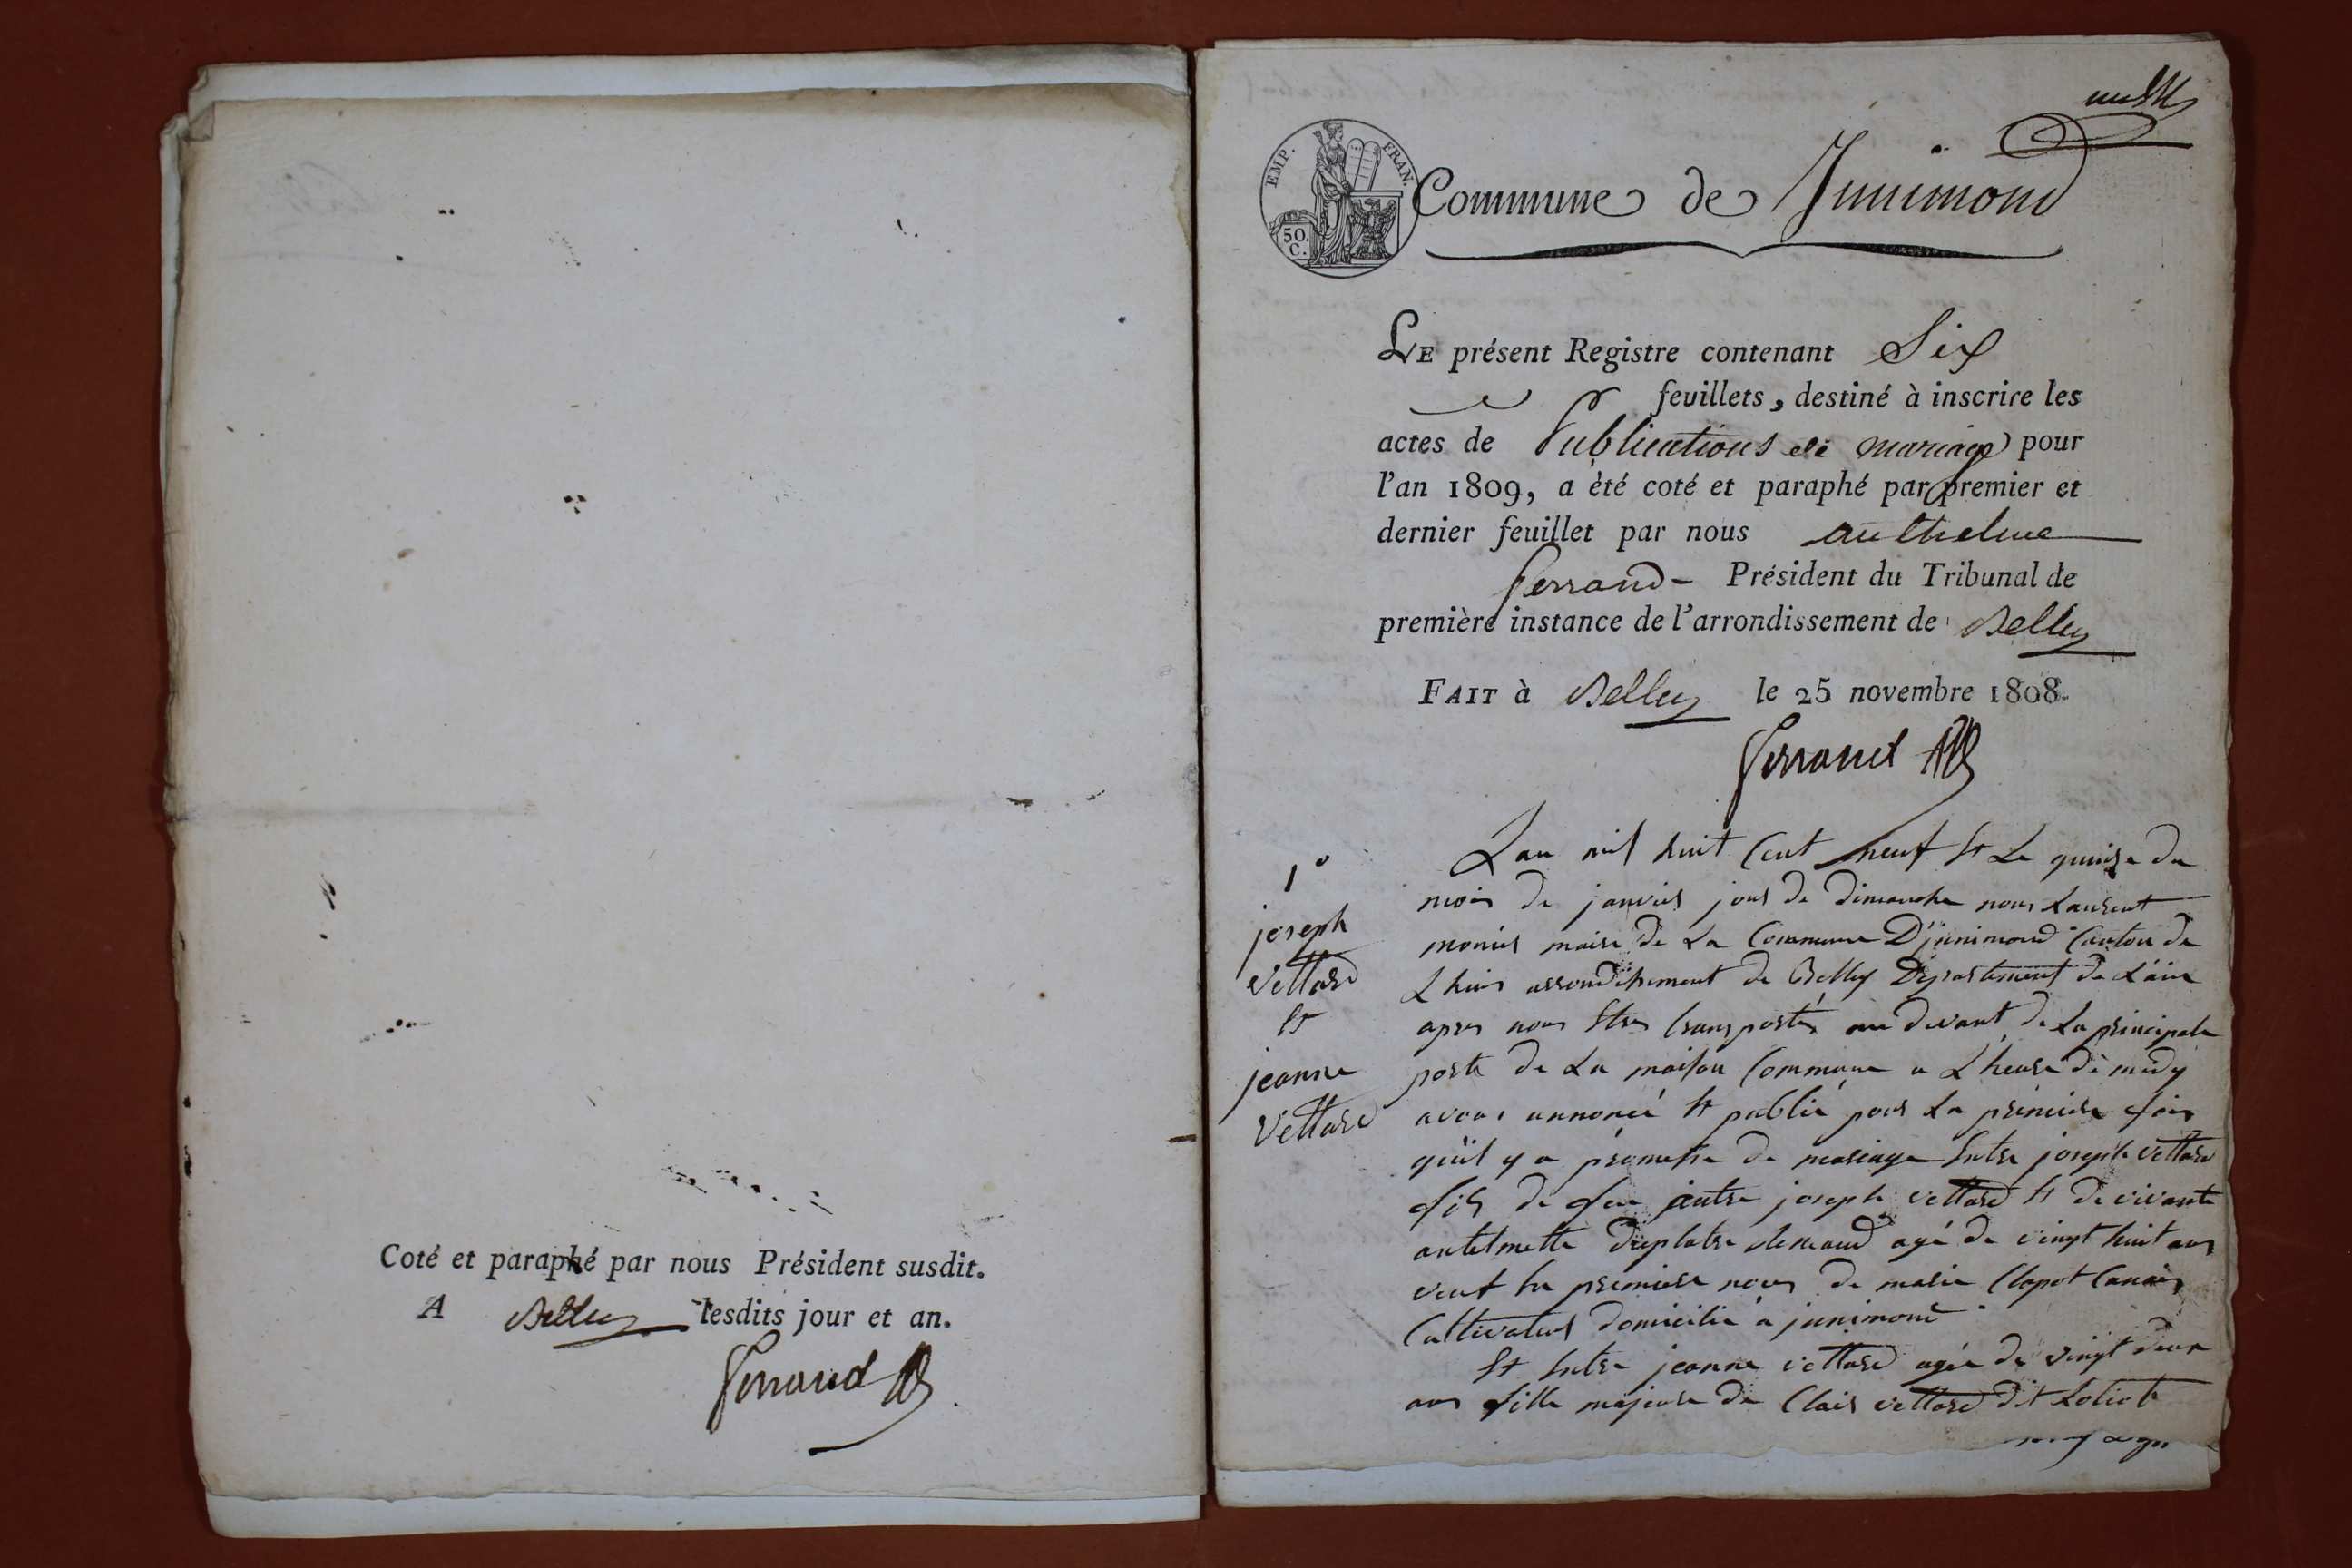 Coté et paraphé par nous Président susdit.
A Belley lesdits jour et an.
Ferrand
EMP. FRAN.
50.
C.
Commune de Jnnimond
LE présent Registre contenant Six
feuillets, destiné à inscrire les
actes de Publications de mariage pour
l'an 1809, a été coté et paraphé par premier et
dernier feuillet par nous anthelme
ferrand - Président du Tribunal de
première instance de l'arrondissement de Belley
FAIT à Belley le 25 novembre 1808.
Ferrand
1°
joseph
vettard
Et
jeanne
Vettard
L'an mil huit Cent neuf Et Le quinze du
mois de janvier jour de Dimanche nous Laurent
monier maire De La Commune D'jnnimond Canton de
Lhuis arrondissement de Belley Département de L'ain
apres nous Etre transportés au devant de La principale
porte De La maison Commune a L'heure de midy
avons annoncé Et publié pour La premiere fois
qu'il y a promesse de mariage Entre joseph vettard
fils de feu autre joseph vettard Et De vivante
antelmette Duplatre age de vingt huit ans
veuf En premiere noces de marie Clapot
Cultivateur Domicilié a jnnimond
Et Entre jeanne vettard agée de vingt deux
ans fille majeure de Clair vettard Dit